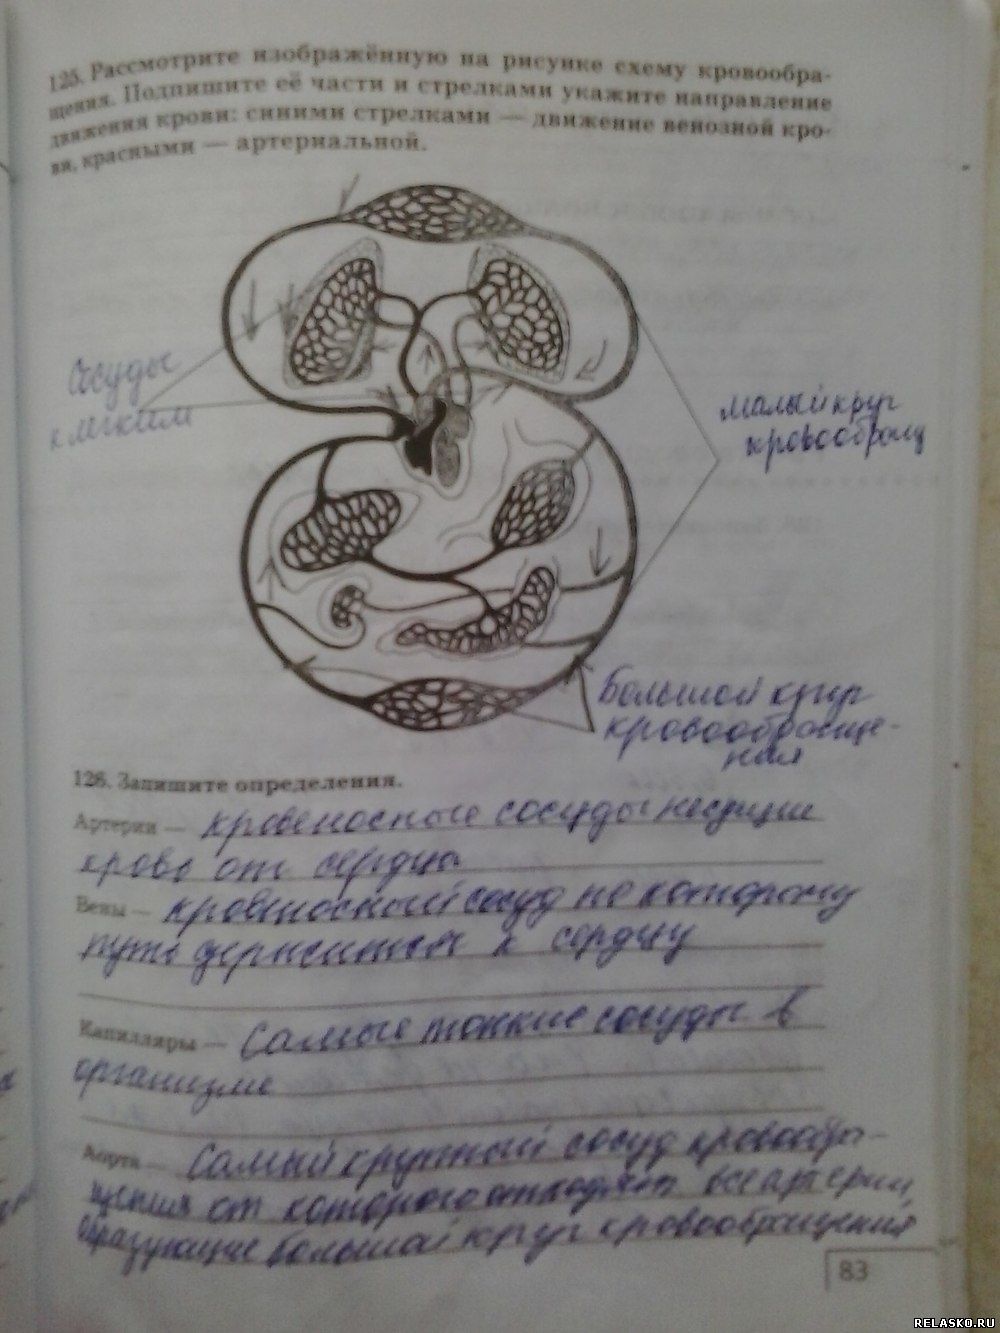 125. Рассмотрите изображённую на рисунке схему кровообра-
щения. Подпишите её части и стрелками укажите направление
движения крови: синими стрелками — движение венозной кро-
ви, красными — артериальной.
Сосуды
к легким
малый круг
кровообращ
Большой круг
кровообраще-
ния
126. Запишите определения.
Артерии — кровеносные сосуды несущие
кровь от сердца
Вены — кровеносный сосуд по которому
к сердцу
Капилляры — Самые тонкие сосуды в
организме
Аорта — Самый крупный сосуд кровообра-
щения от которого отходят все артерии,
образующие большой круг кровообращения
83
RELASKO.RU